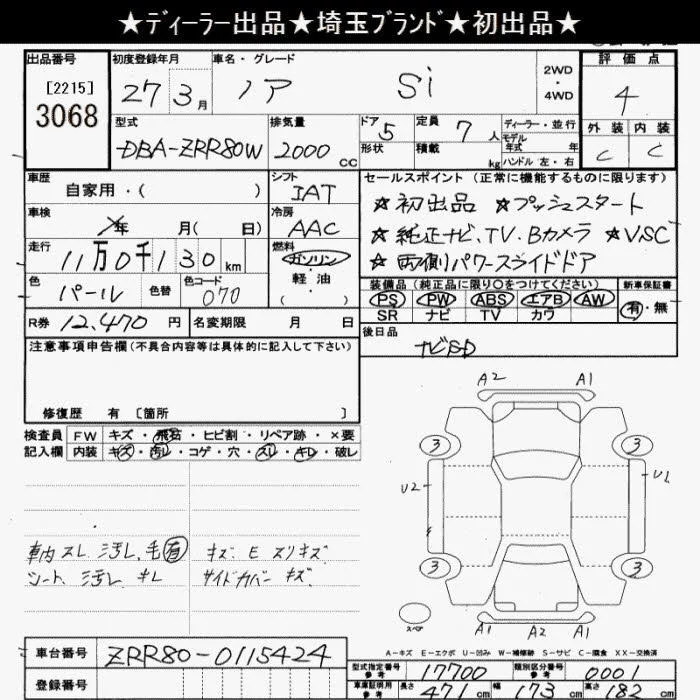 ★ディーラー出品★埼玉ブランド★初出品★
出品番号
[2215]
3068
初度登録年月
27年3月
車名・グレード
ノア Si
2WD
・
4WD
評価点
4
外装 内装
C C
型式
DBA-ZRR80W
排気量
2000cc
ドア
5
形状
定員
7人
積載 kg
ディーラー・並行
モデル
年式 年
ハンドル 左・右
車歴
自家用・( )
シフト
IAT
車検
年 月( 日)
冷房
AAC
走行
11万0千130km
燃料
ガソリン
軽油
( ・ )
色
パール
色替
色コード
070
R券 12,470円
名変期限 月 日
セールスポイント(正常に機能するものに限ります)
☆初出品 ☆プッシュスタート
☆純正ナビ、TV、Bカメラ ☆VSC
☆両側パワースライドドア
装備品(純正品に限り○をつけてください)
PS PW ABS エアB AW
SR ナビ TV カワ
新車保証書
有・無
後日品
ナビSD
注意事項申告欄(不具合内容等は具体的に記入して下さい)
修復歴 有 〔箇所 〕
検査員
記入欄
FW キズ・飛石・ヒビ割・リペア跡・×要
内装 キズ・汚レ・コゲ・穴・スレ・キレ・破レ
車内 スレ 汚レ、毛有
シート 汚レ キレ
キズ E スリキズ
サイドカバー キズ
A2 A1
3 3
U2 U1
3 3
スペア
A1 A2 A1
A-キズ E-エクボ U-凹み W-補修跡 S-サビ C-腐食 XX-交換済
車台番号
ZRR80-0115424
登録番号
型式指定番号
参考
17700
類別区分番号
参考
0001
車庫証明用
参考
長さ 471cm
幅 173cm
高さ 182cm